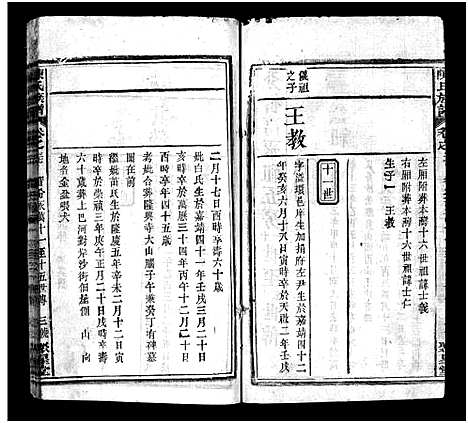 左廂附葬本灣十六世諱士義
右廂附葬本灣十六世諱士仁
生子一 王教
十一世
儀祖之子
王教
字溢環邑庠生加捐貢生於嘉靖四十二
年癸亥六月十八日寅時卒於天啟二年壬戌
二月十七日酉時壽六十歲
妣白氏生於嘉靖四十一年壬戌三月二十日
亥時卒於萬曆三十四年丙午十二月二十日
酉時享年四十五歲
考妣合葬隆興寺大山廟子午兼癸丁有碑墓
繼妣苗氏生於隆慶五年辛未二月十二日寅
時卒於崇禎三年庚午正月二十日戌時享年
六十歲葬上巴河對岸沙街佃基側 山 向
地者金盆張大